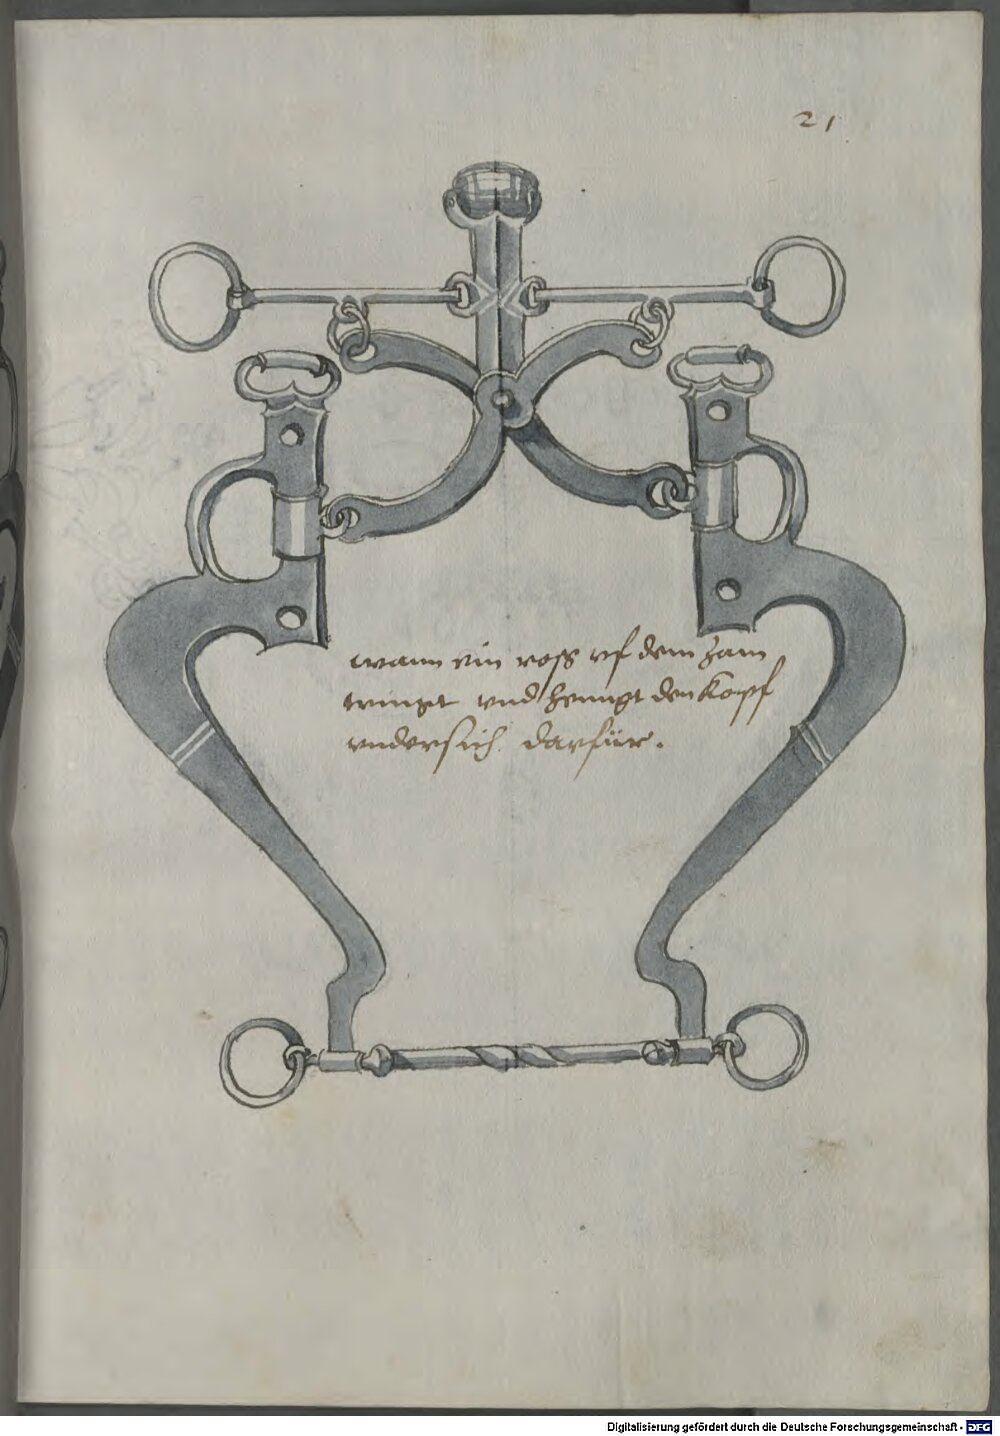 21
wann ein ross vf dem zam
tringet vnd henngt den kopf
vndersich. darfür.
Digitalisierung gefördert durch die Deutsche Forschungsgemeinschaft - DFG